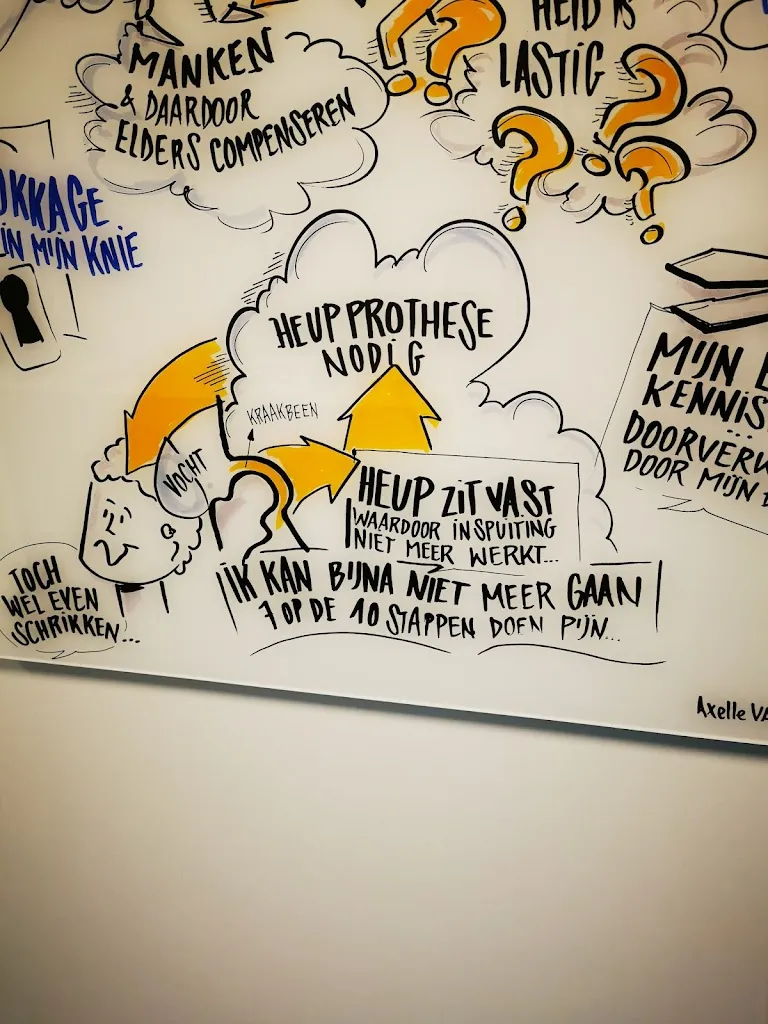 MANKEN
& DAARDOOR
ELDERS COMPENSEREN
HEID IS
LASTIG
IN MIJN KNIE
HEUPPROTHESE
NODIG
KRAAKBEEN
VOCHT
HEUP ZIT VAST
WAARDOOR INSPUITING
NIET MEER WERKT...
IK KAN BIJNA NIET MEER GAAN
7 OP DE 10 STAPPEN DOEN PIJN...
TOCH
WEL EVEN
SCHRIKKEN...
MIJN
KENNIS
...
DOORVERW
DOOR MIJN
Axelle VA